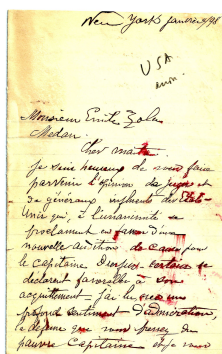 New York janvier 98
USA
Monsieur Emile Zola
Medan.
Cher maître
Je suis heureux de vous faire
parvenir l'opinion de juges et
de généraux influents des États-
Unis qui, à l'unanimité se
proclament en faveur d'une
nouvelle audition de cause pour
le Capitaine Dreyfus. Certains se
déclarent favorables à son
acquittement. J'ai lu avec un
profond sentiment d'admiration,
la défense que vous
pauvre Capitaine et je vous